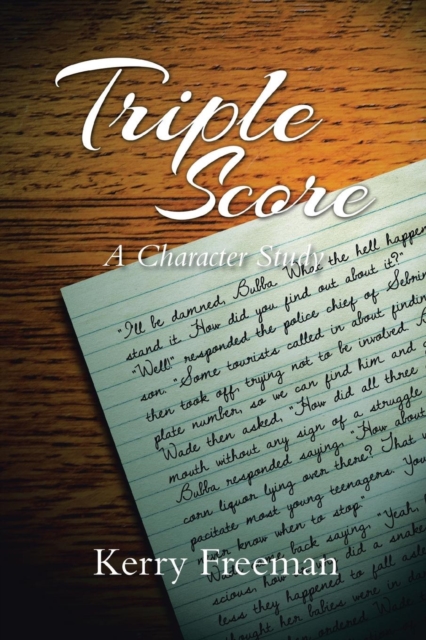 Triple
Score
A Character Study
"I'll be damned, Bubba. What the hell happen
stand it. How did you find out about it?"
"Well!" responded the police chief of Sebrin
son. "Some tourists called in about findin
then took off, trying not to be involved.
plate number, so we can find him and
Wade then asked, "How did all three
mouth without any sign of a struggle
Bubba responded saying, "How about
corn liquor lying over there? That w
pacitate most young teenagers. You
ver know when to stop."
Wade came back saying, "Yeah,
scious, how did a snake
less they happened to fall asle
thought her babies were in da
Wade
Kerry Freeman